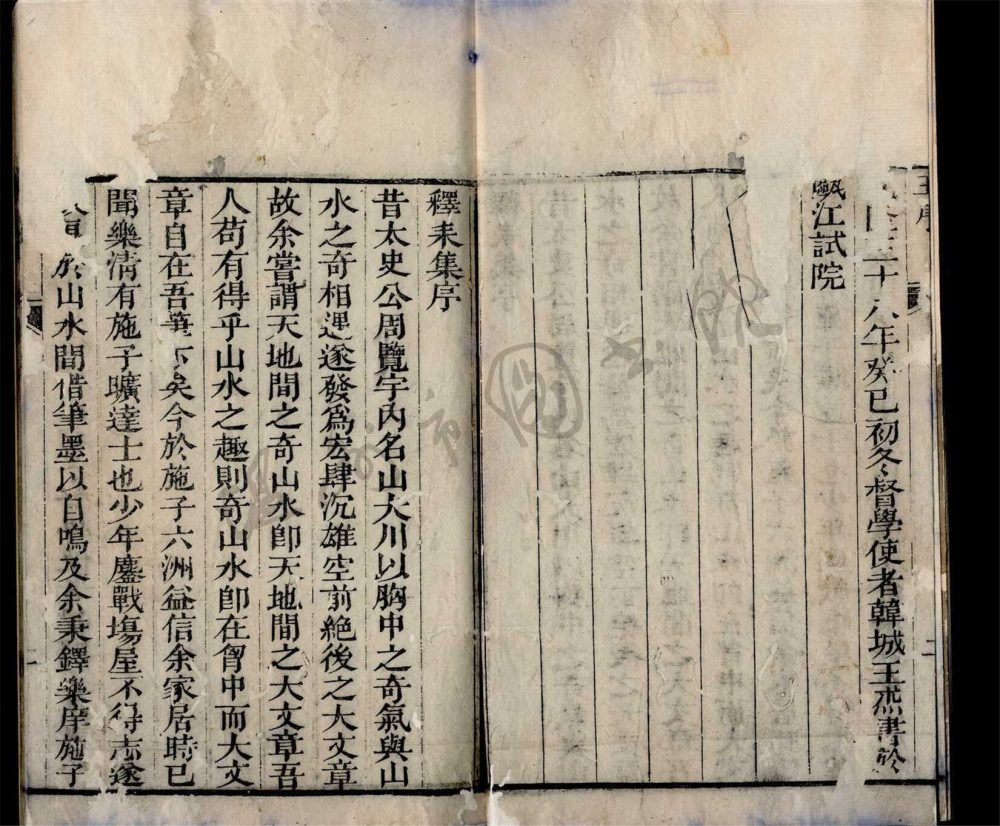 隆三十八年癸巳初冬督學使者韓城王杰書於
甌江試院
釋耒集序
昔太史公周覽宇內名山大川以胸中之奇氣與山
水之奇相遇遂發爲宏肆沉雄空前絕後之大文章
故余嘗謂天地間之奇山水卽天地間之大文章吾
人苟有得乎山水之趣則奇山水卽在胷中而大文
章自在吾筆下矣今於施子六洲益信余家居時已
聞樂清有施子曠達士也少年鏖戰塲屋不得志遂
於山水間借筆墨以自鳴及余秉鐸樂庠施子